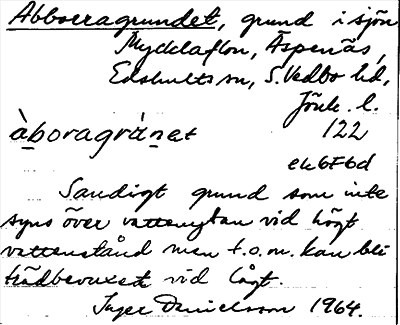 Abborragrundet, grund i sjön
Mycklaflon, Äspenäs,
Edshults sn, S. Vedbo hd,
Jönk. l.
àboragránat 122
ek6F6d
Sandigt grund som inte
syns över vattenytan vid högt
vattenstånd men t.o.m. kan bli
trädbevuxet vid lågt.
Inger Danielsson 1964.